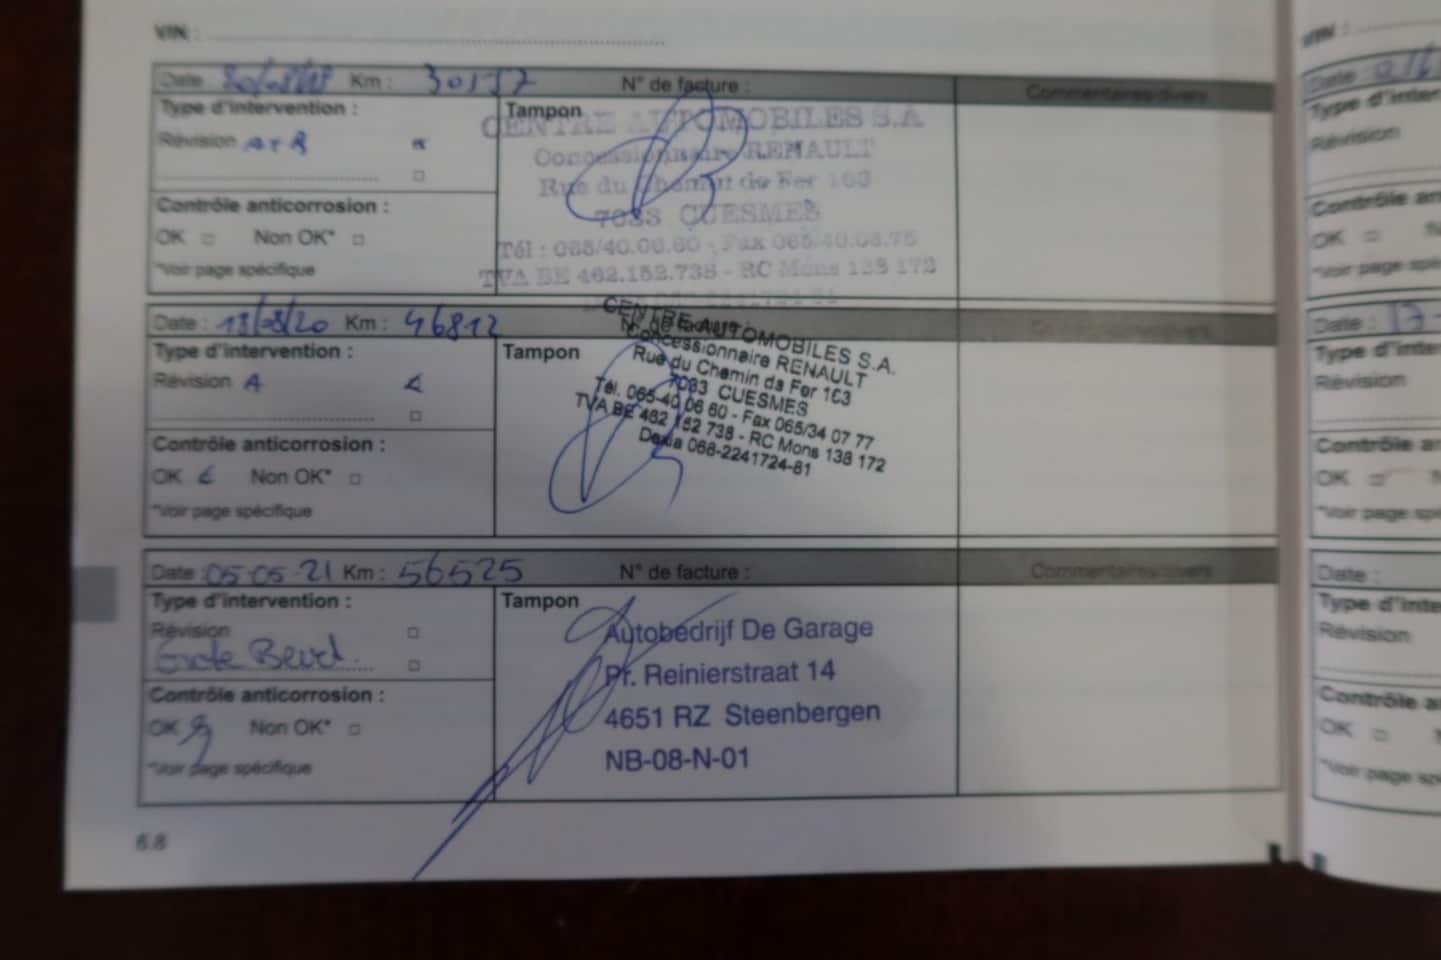 VIN :
Date 30/08/18 Km : 30157 N° de facture : Commentaires/divers
Type d'intervention :
Révision A+B
Contrôle anticorrosion :
OK Non OK*
*Voir page spécifique
Tampon
CENTRE AUTOMOBILES S.A
Concessionnaire RENAULT
Rue du Chemin de Fer 163
7033 CUESMES
Tél : 065/40.06.60 - Fax 065/40.06.75
TVA BE 462.152.738 - RC Mons 138 172
Date : 13/08/20 Km : 46812 N° de facture :
Type d'intervention :
Révision A
Contrôle anticorrosion :
OK Non OK*
*Voir page spécifique
Tampon
CENTRE AUTOMOBILES S.A.
Concessionnaire RENAULT
Rue du Chemin de Fer 163
7033 CUESMES
Tél. 065-40 06 60 - Fax 065/34 07 77
TVA BE 462 152 738 - RC Mons 138 172
Dexia 068-2241724-81
Date : 05-05-21 Km : 56525 N° de facture : Commentaires/divers
Type d'intervention :
Révision
Grote Beurt
Contrôle anticorrosion :
OK Non OK*
*Voir page spécifique
Tampon
Autobedrijf De Garage
Pr. Reinierstraat 14
4651 RZ Steenbergen
NB-08-N-01
6.8
VIN :
Date
Révision
OK
Date : 17-
Révision
OK
Date :
Révision
OK